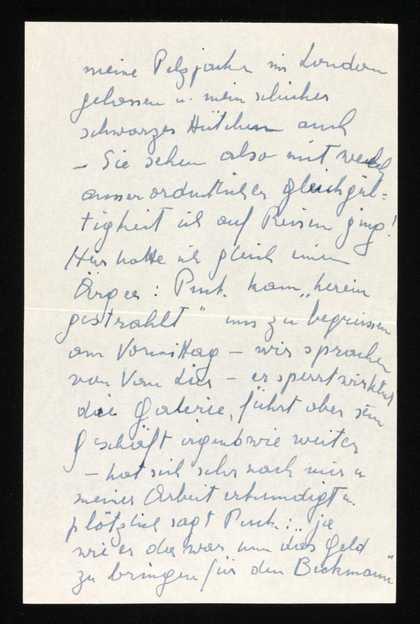 meine Pelzjacke in London
gelassen u. mein schickes
schwarzes Hütchen auch
– Sie sehen also mit welch
ausserordentlicher Gleichgül=
tigkeit ich auf Reisen ging!
Hier hatte ich gleich einen
Ärger: Pink. kam „herein
gestrahlt" uns zu begrüssen
am Vormittag – wir sprachen
von Van Lier – er sperrt wirklich
die Galerie, führt aber sein
Geschäft irgendwie weiter
– hat sich sehr nach mir u
meiner Arbeit erkundigt u.
plötzlich sagt Pink.: „ja
wie er da war um das Geld
zu bringen für den Beckmann"